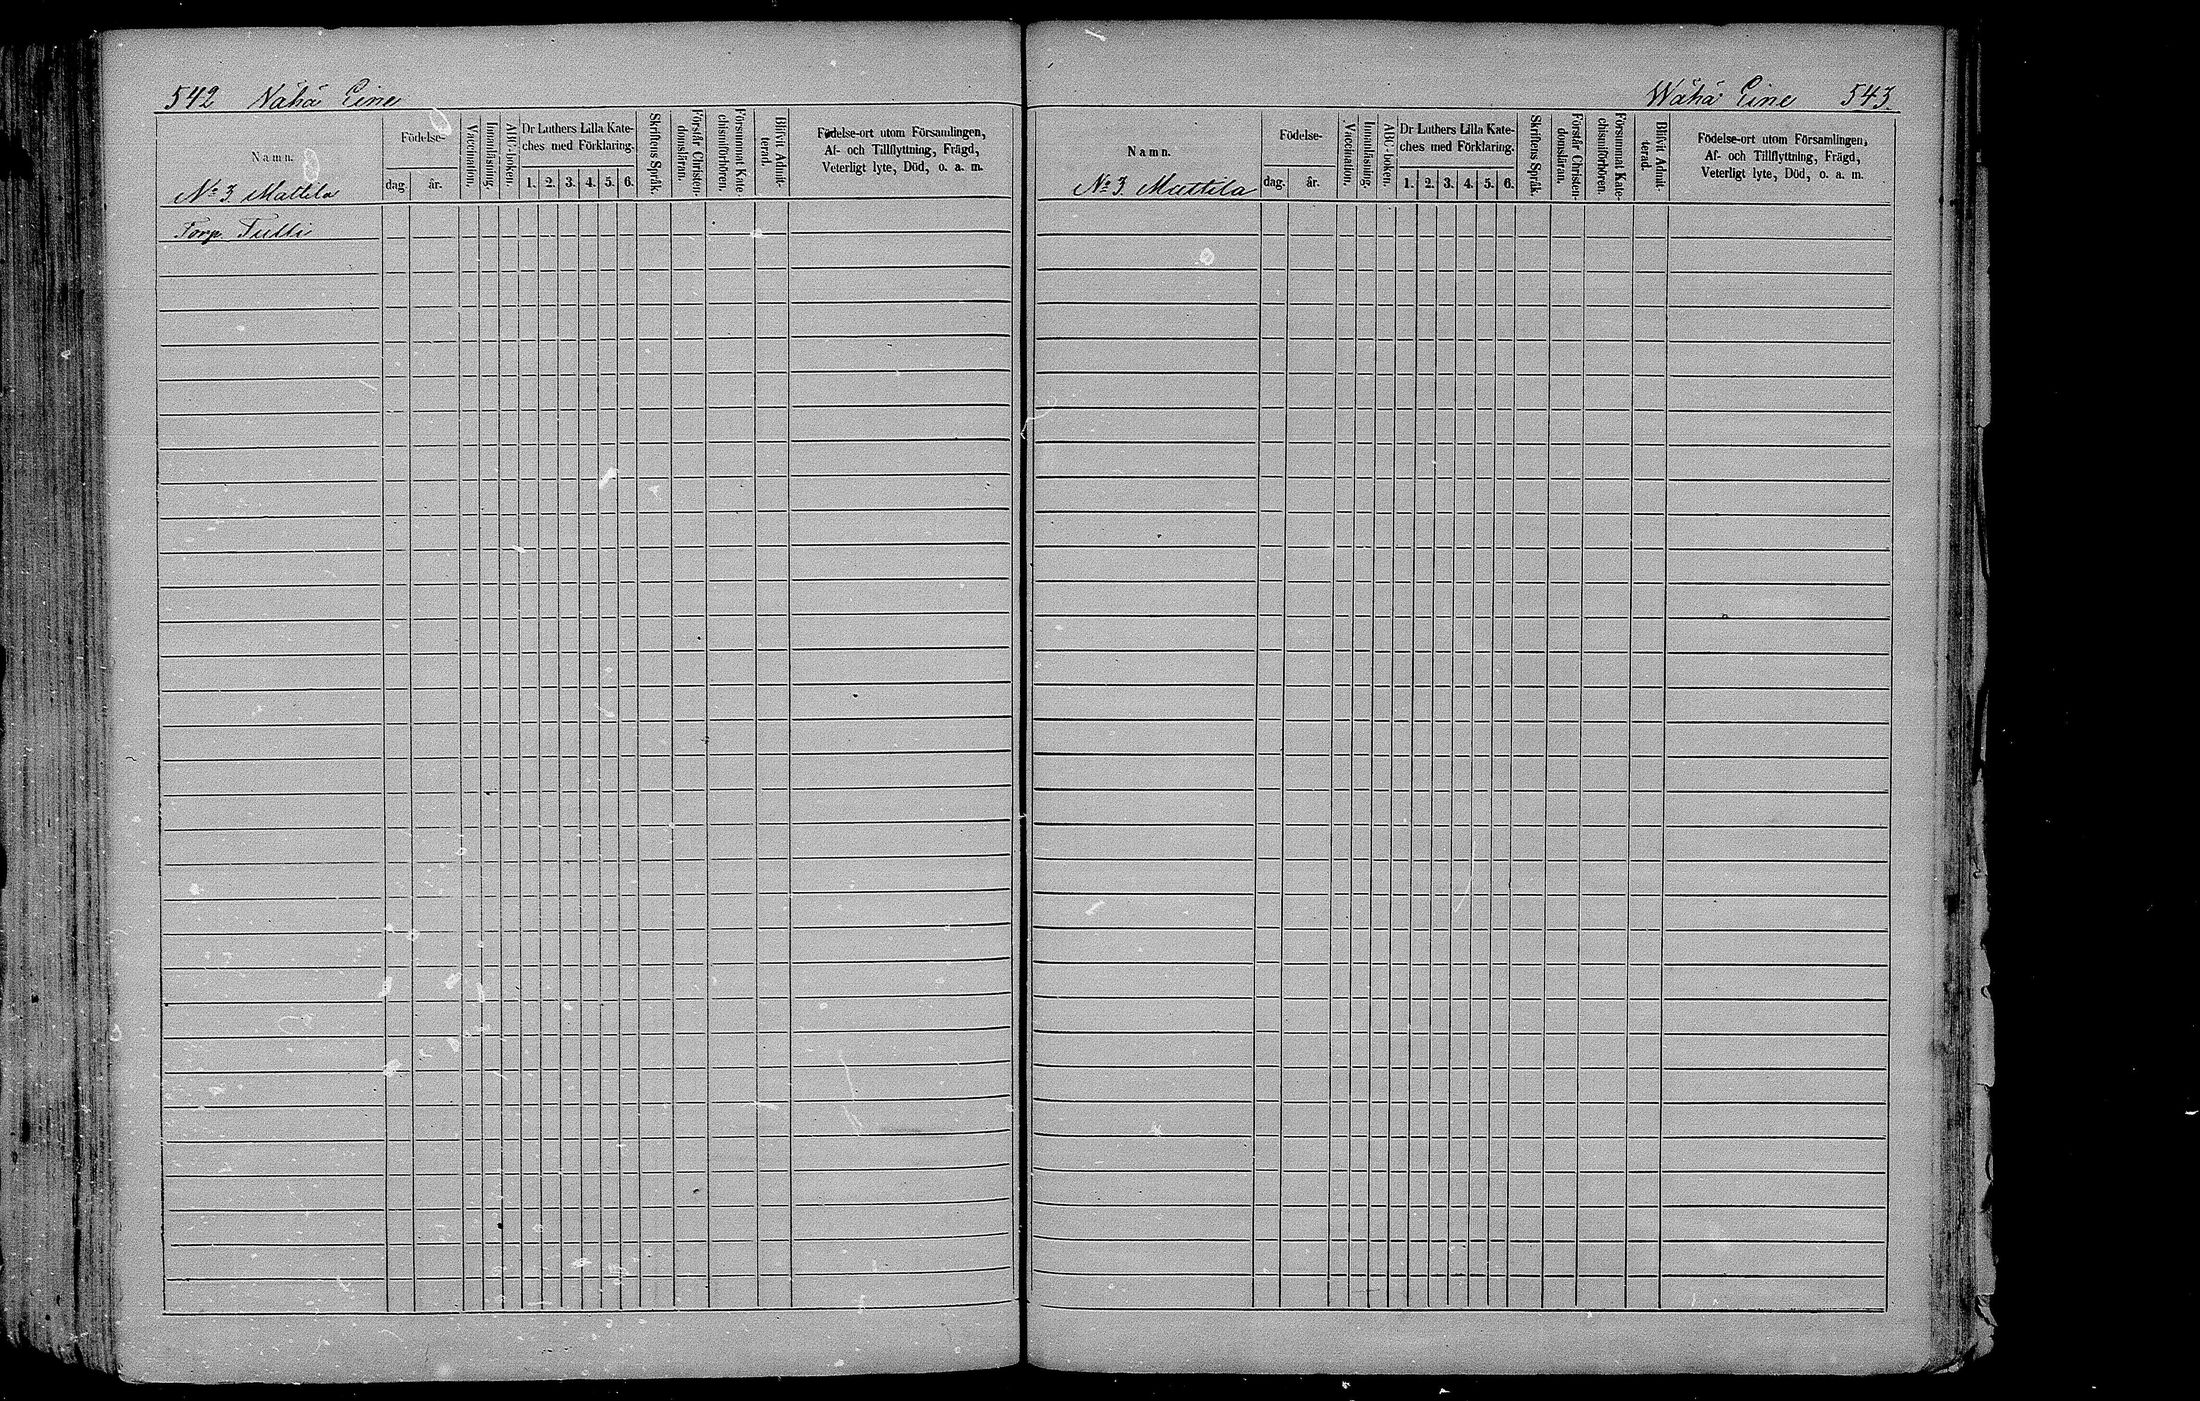 542 Wähä Eine
Namn.
Födelse-
dag.
år.
Vaccination.
Innanläsning.
ABC-boken.
Dr Luthers Lilla Kate-
ches med Förklaring.
1. 2. 3. 4. 5. 6.
Skriftens Språk.
Förstår Christen-
domsläran.
Försummat Kate-
chismiförhören.
Blifvit Admit-
terad.
Födelse-ort utom Församlingen,
Af- och Tillflyttning, Frägd,
Veterligt lyte, Död, o. a. m.
No 3 Mattila
Torp. Tulli
Wähä Eine 543.
Namn.
Födelse-
dag.
år.
Vaccination.
Innanläsning.
ABC-boken.
Dr Luthers Lilla Kate-
ches med Förklaring.
1. 2. 3. 4. 5. 6.
Skriftens Språk.
Förstår Christen-
domsläran.
Försummat Kate-
chismiförhören.
Blifvit Admit-
terad.
Födelse-ort utom Församlingen,
Af- och Tillflyttning, Frägd,
Veterligt lyte, Död, o. a. m.
No 3. Mattila